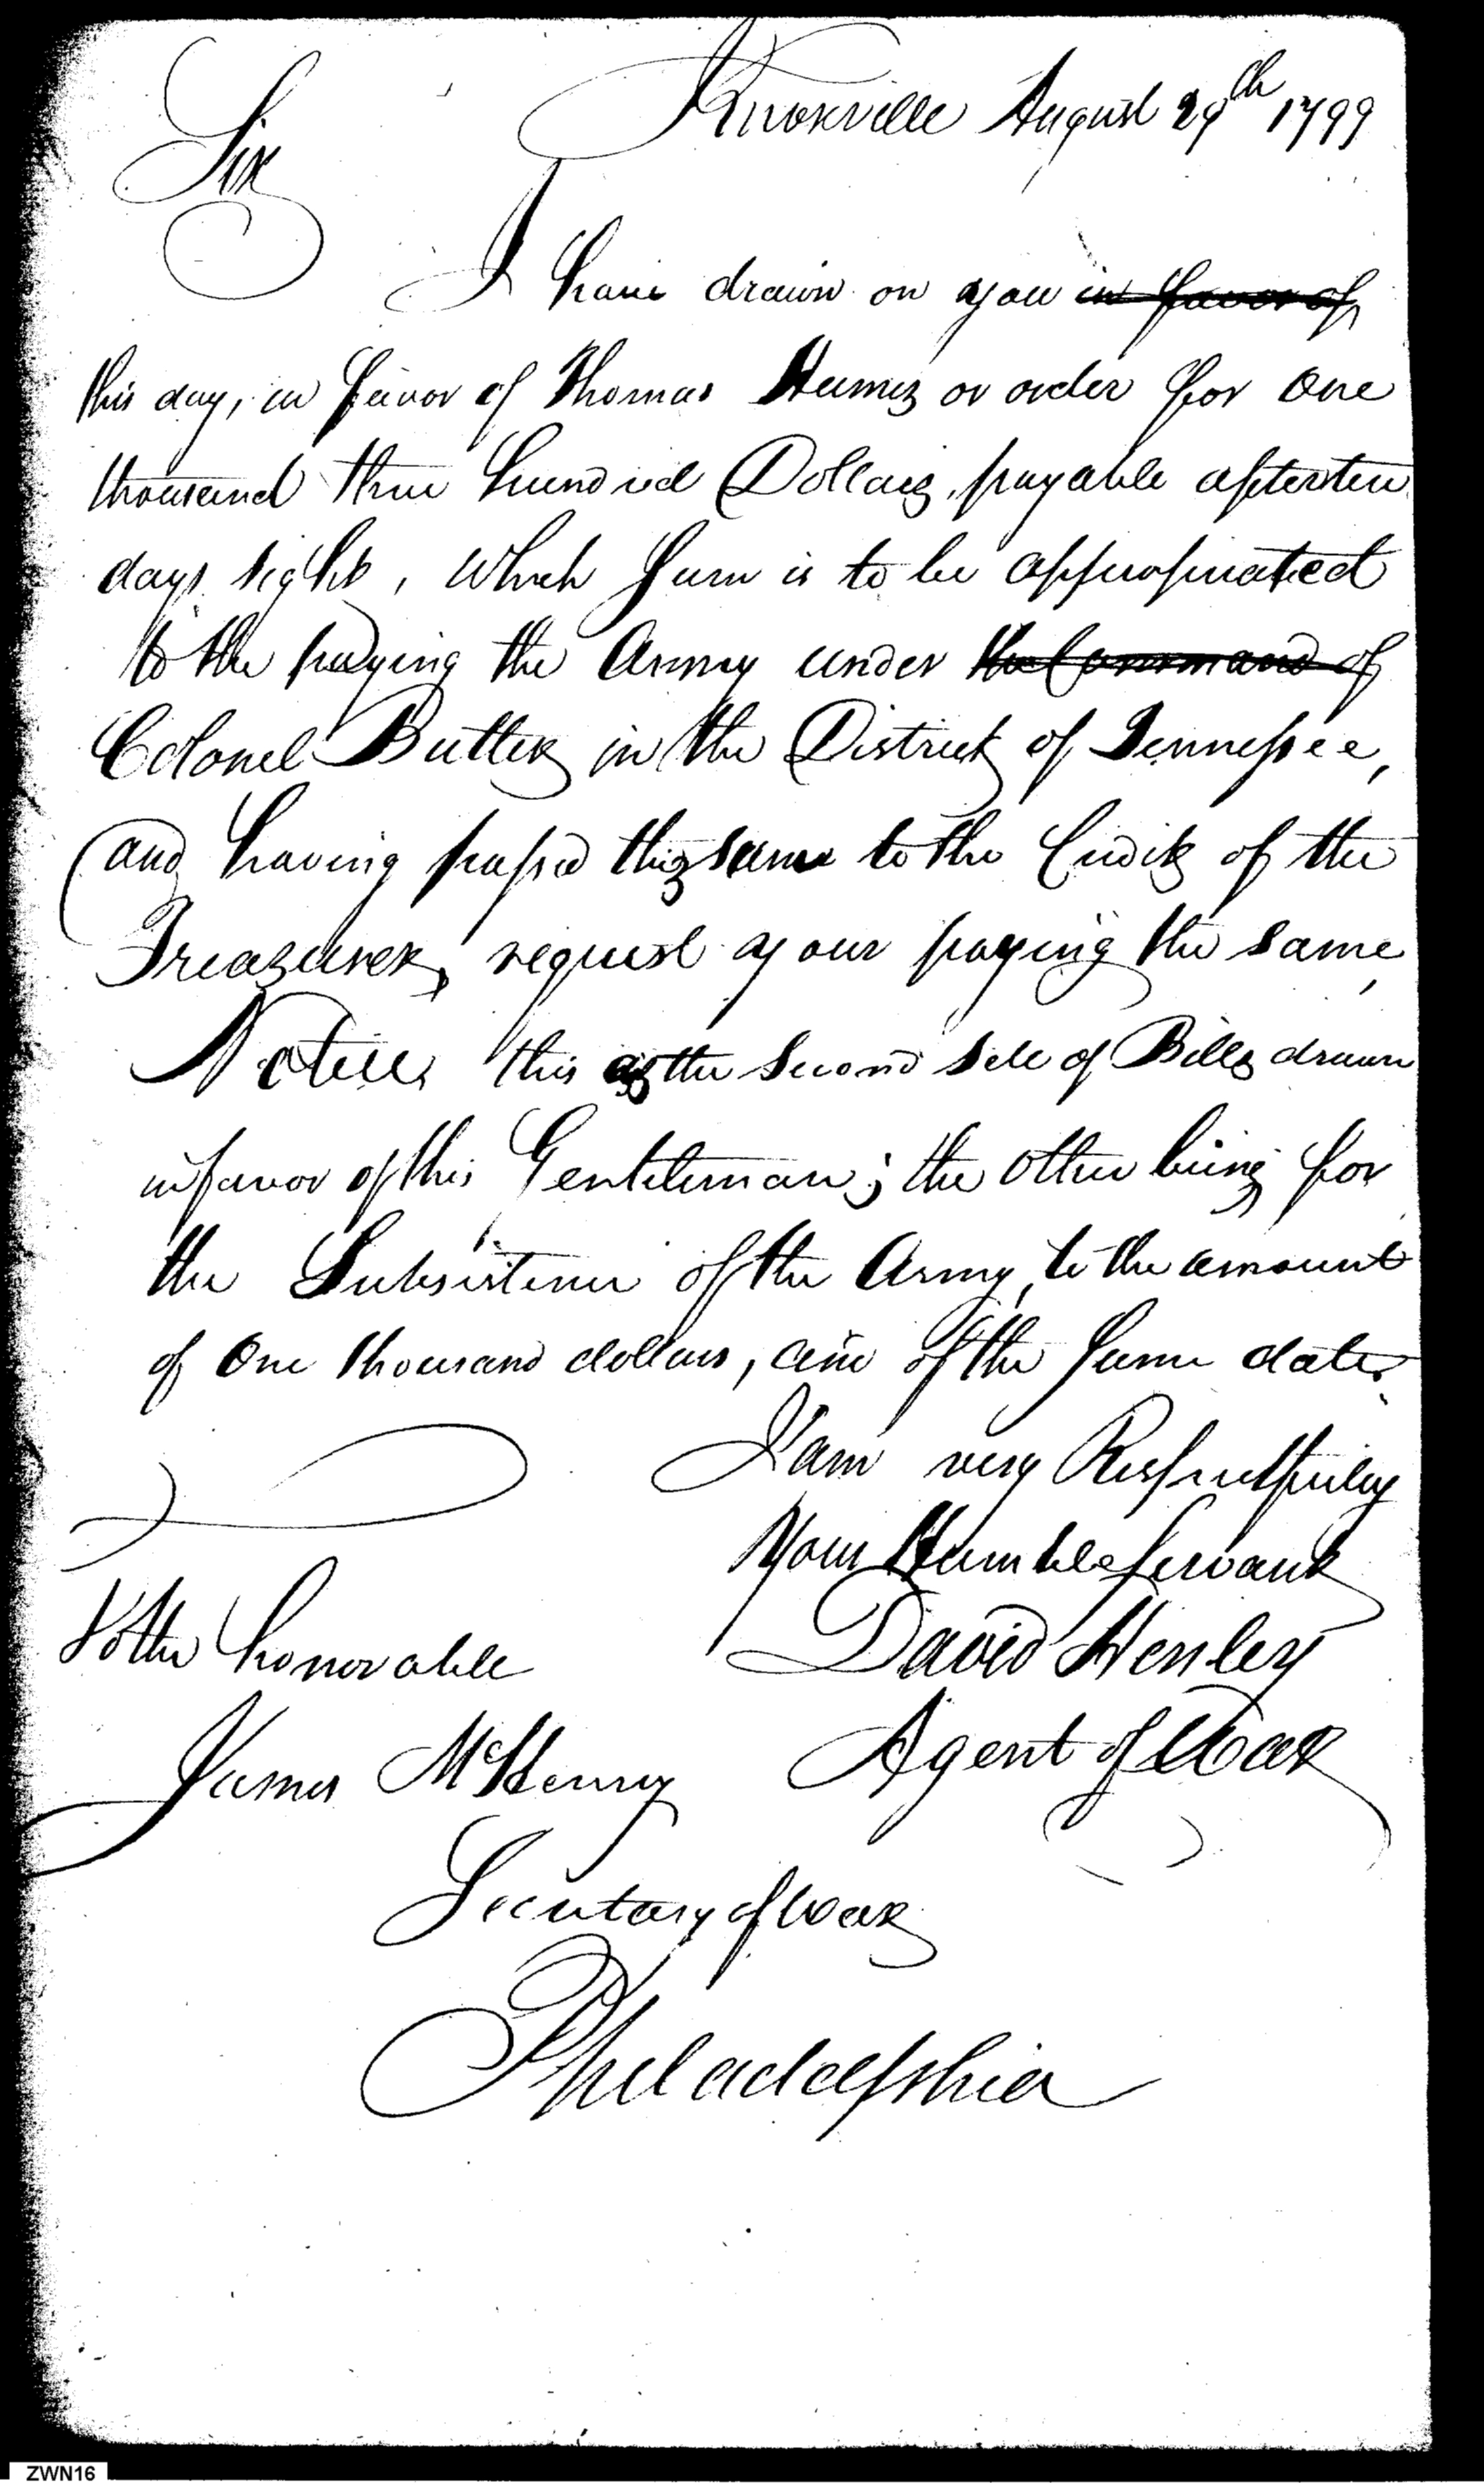 Knoxville August 29th 1799
Sir
I have drawn on you in favor of
this day, in favor of Thomas Humes or order for One
thousand three hundred Dollars, payable after ten
days sight, which sum is to be appropriated
to the paying the Army under the Command of
Colonel Butler in the District of Tennessee,
and having passed the same to the Credit of the
Treasurer, request your paying the same,
Notice this is the Second Sett of Bills drawn
in favor of this Gentleman; the other being for
the Subsistence of the Army, to the amount
of One thousand dollars, and of the same date.
I am very Respectfully
Your Humble Servant
David Henley
Agent of War
To the honorable
James McHenry
Secretary of War
Philadelphia
ZWN16